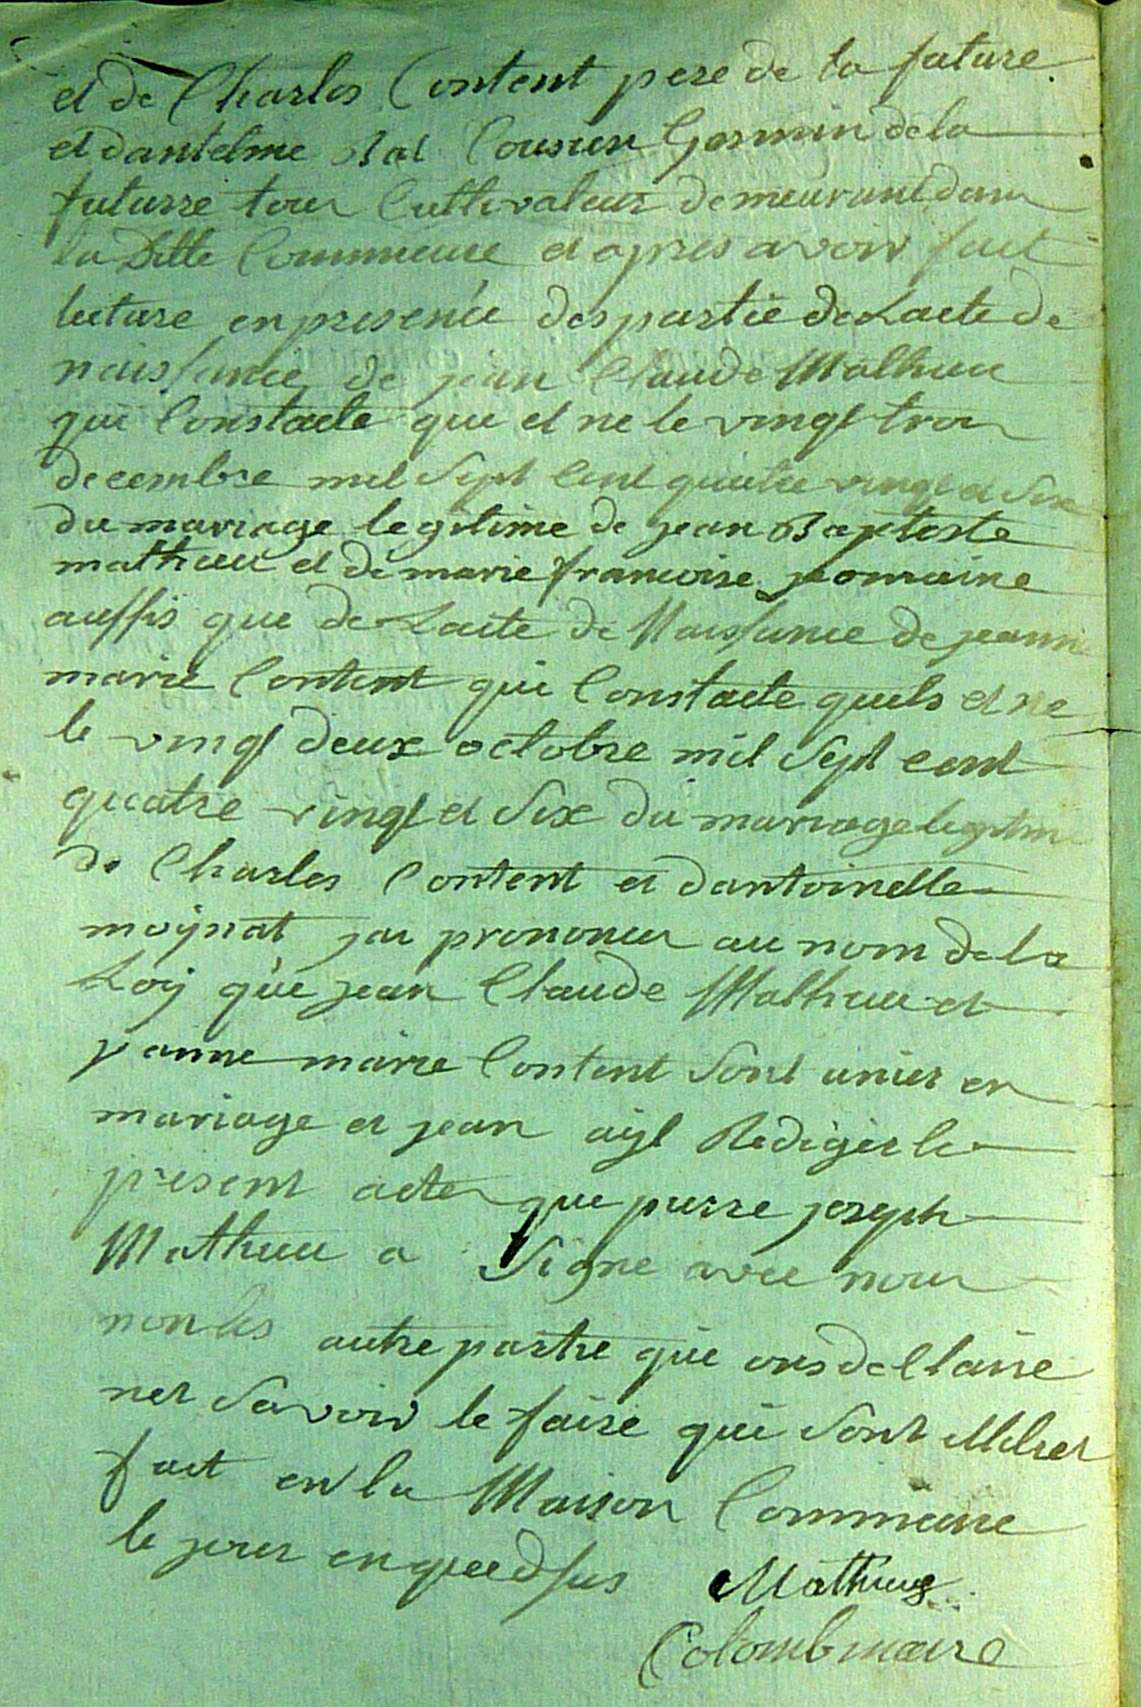 et de Charles Content pere de la future
et dantelme Bal Cousien Germin de la
futurre tous Culltivateur demeurant dans
la Ditte Commeune et apres avoir fait
lecture en presencée des partie de Lacte de
naissance de jean Claude Mathieu
qui Constacte que et ne le vingt trois
decembre mil Sept Cent quatre vingt et Six
du mariage legitime de jean Baptiste
mathieu et de marie francoise jromaine
aussis que de Lacte de Naissance de jeanne
marie Content qui Constacte quels et ne
le vingt deux octobre mil Sept cent
quatre vingt et Six du mariage legitime
de Charles Content et dantoinette
moynat jai prononcer au nom de la
Loy que jean Claude Mathieu et
jeanne marie Content Sont unies en
mariage et jean ayt Redigér le
present acte que pierre joseph
Mathieu a Signe avec nous
non les autre partie que ons decllaire
net Savoir le faire qui Sont
fait en la Maison Commeune
le jour en que dsus Mathieu
Colomb maire